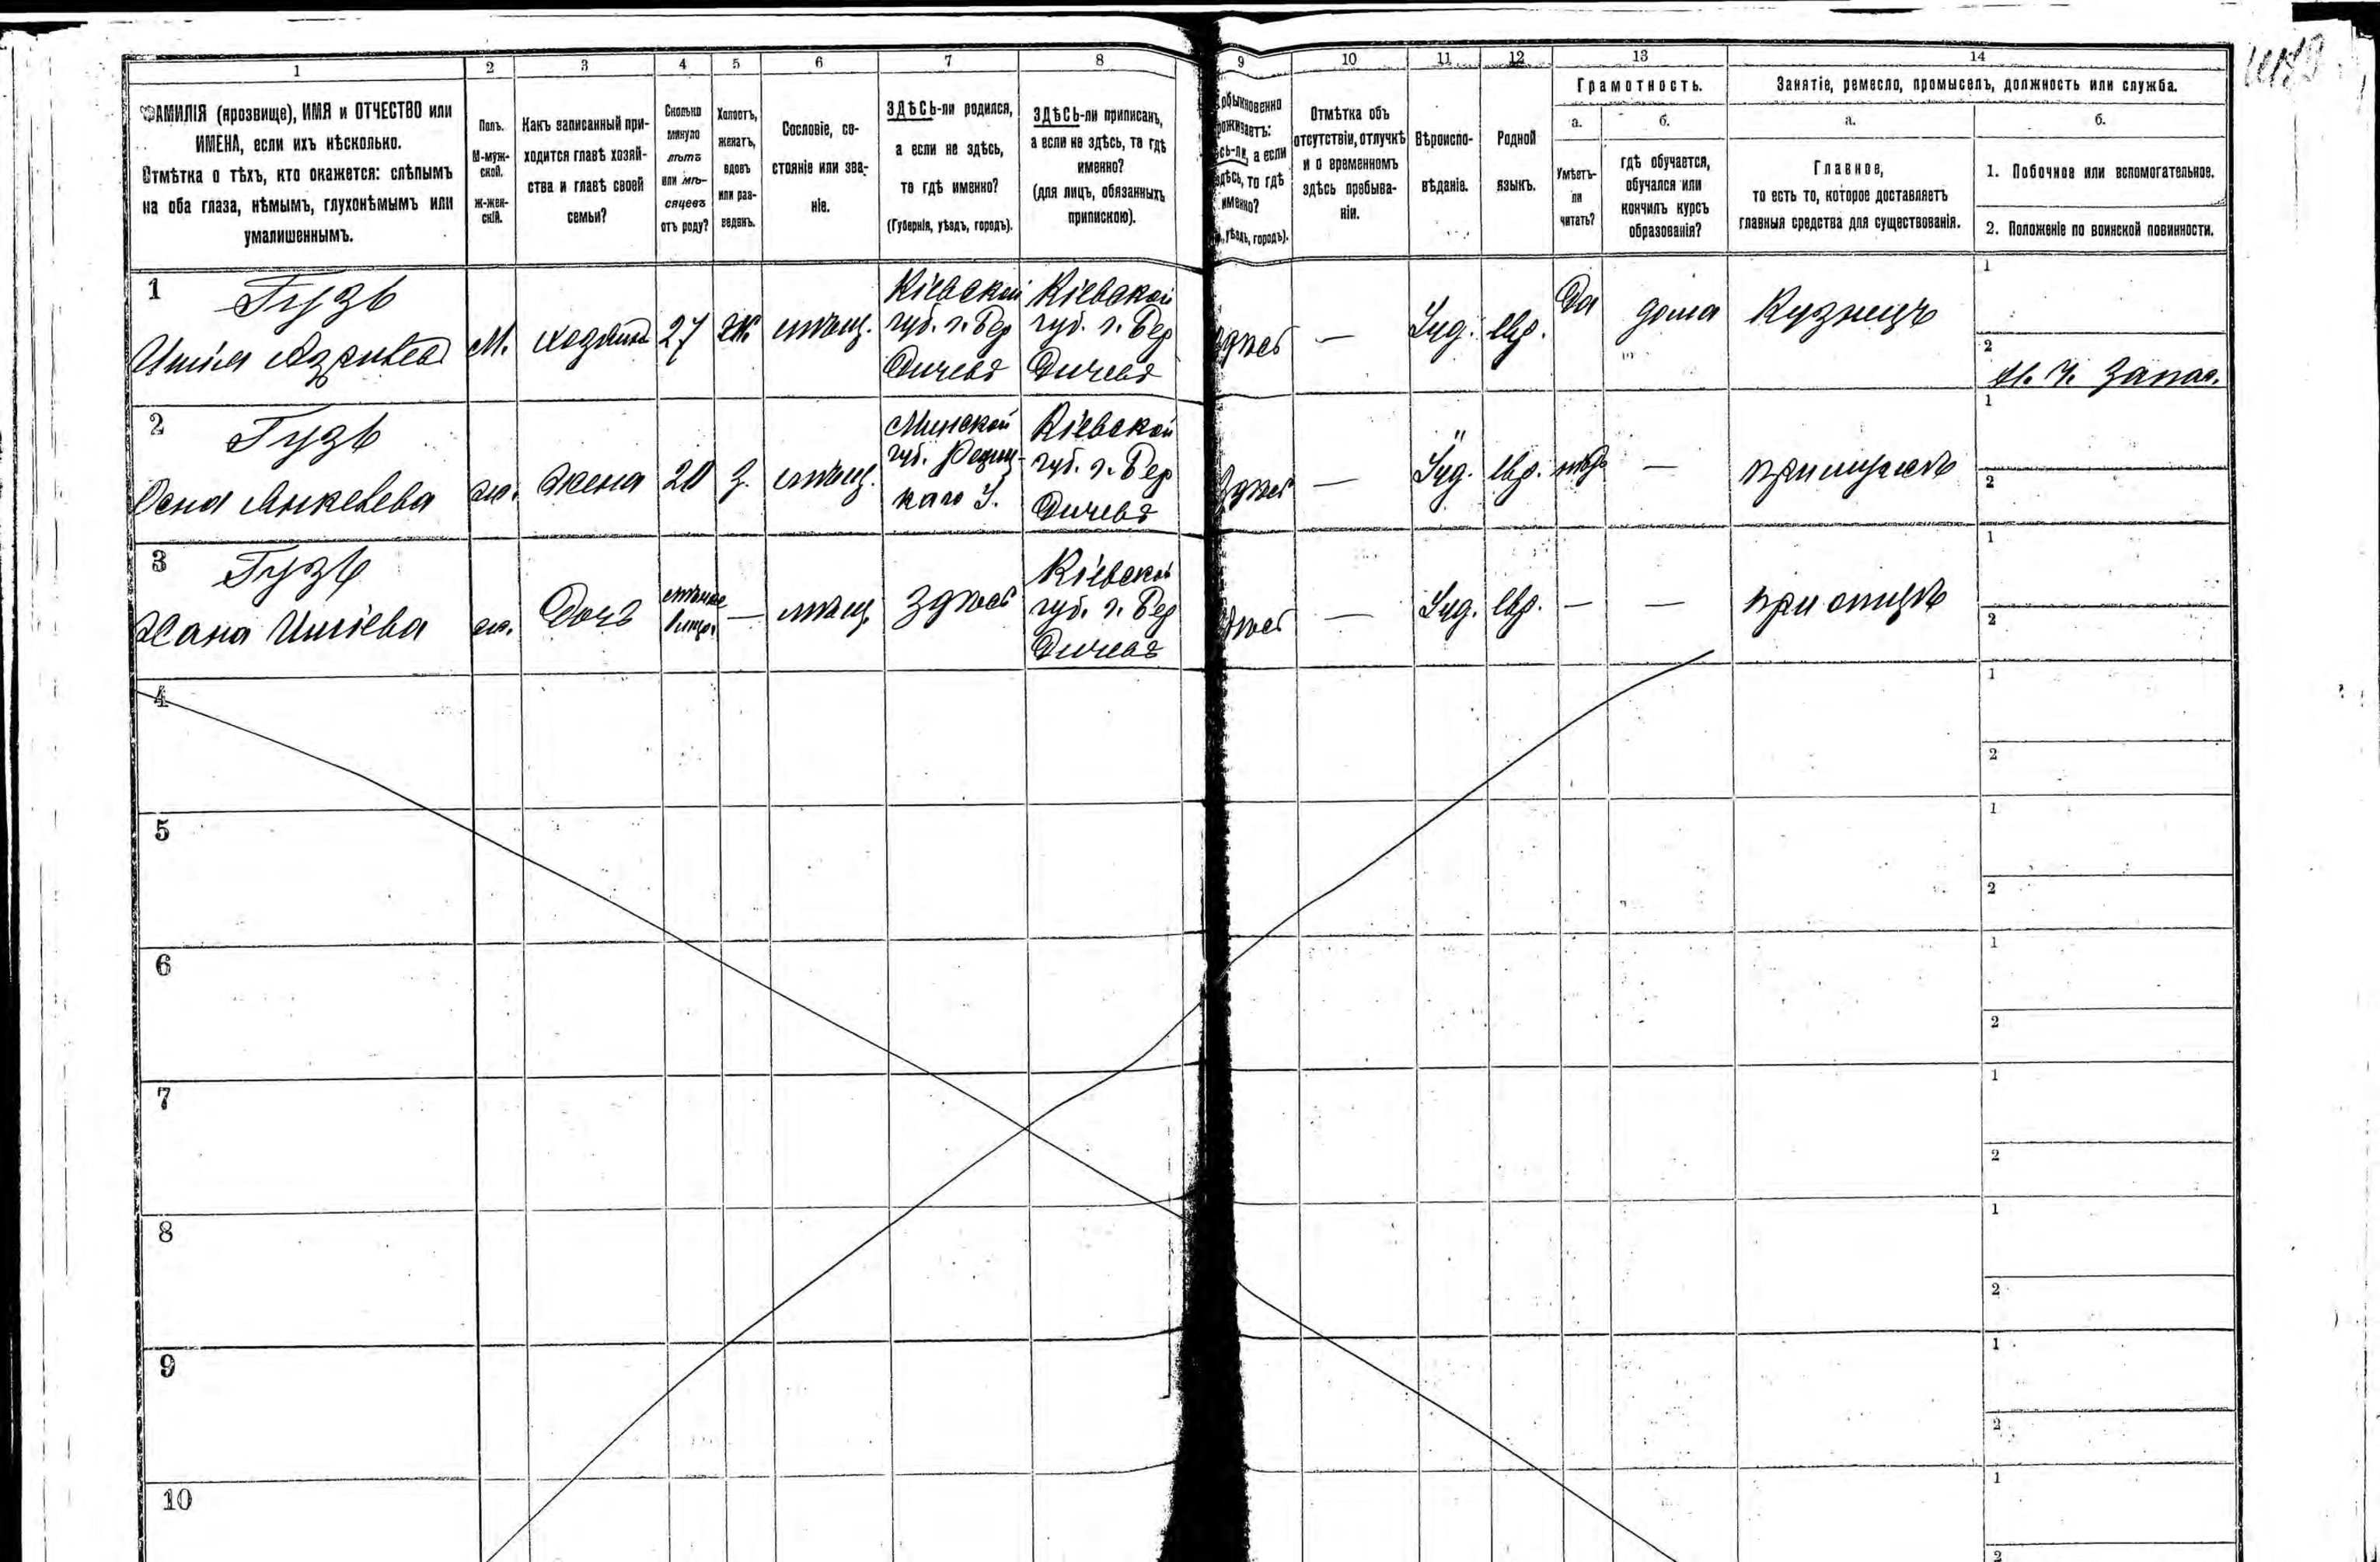 1 2 3 4 5 6 7 8 9 10 11 12 13 14
ФАМИЛІЯ (прозвище), ИМЯ и ОТЧЕСТВО или
ИМЕНА, если ихъ нѣсколько.
Отмѣтка о тѣхъ, кто окажется: слѣпымъ
на оба глаза, нѣмымъ, глухонѣмымъ или
умалишеннымъ.
Полъ.
М-муж-
ской.
Ж-жен-
скій.
Какъ записанный при-
ходится главѣ хозяй-
ства и главѣ своей
семьи?
Сколько
минуло
лѣтъ
или мѣ-
сяцевъ
отъ роду?
Холостъ,
женатъ,
вдовъ
или раз-
веденъ.
Сословіе, со-
стояніе или зва-
ніе.
ЗДѢСЬ-ли родился,
а если не здѣсь,
то гдѣ именно?
(Губернія, уѣздъ, городъ).
ЗДѢСЬ-ли приписанъ,
а если не здѣсь, то гдѣ
именно?
(для лицъ, обязанныхъ
припискою).
обыкновенно
а если
здѣсь, то гдѣ
именно?
уѣздъ, городъ).
Отмѣтка объ
отсутствіи, отлучкѣ
и о временномъ
здѣсь пребыва-
ніи.
Вѣроиспо-
вѣданіе.
Родной
языкъ.
Грамотность.
а.
Умѣетъ-
ли
читать?
б.
гдѣ обучается,
обучался или
кончилъ курсъ
образованія?
Занятіе, ремесло, промыселъ, должность или служба.
а.
Главное,
то есть то, которое доставляетъ
главныя средства для существованія.
б.
1. Побочное или вспомогательное.
2. Положеніе по воинской повинности.
1
Гузь
М.
хозяинъ
27
Ж.
мѣщ.
Кіевской
губ. г. Бер
дичевъ
Кіевской
губ. г. Бер
дичевъ
здѣсь
—
Іуд.
Евр.
Да
дома
Кузнецъ
1
2
запас.
2
Гузь
ж.
жена
20
З.
мѣщ.
Минской
губ. Рѣчиц-
каго у.
Кіевской
губ. г. Бер
дичевъ
здѣсь
—
Іуд.
Евр.
нѣтъ
—
при мужѣ
1
2
3
Гузь
Хана Ишіева
ж.
Дочь
—
мѣщ.
здѣсь
Кіевской
губ. г. Бер
дичевъ
здѣсь
—
Іуд.
Евр.
—
—
при отцѣ
1
2
4
1
2
5
1
2
6
1
2
7
1
2
8
1
2
9
1
2
10
1
2